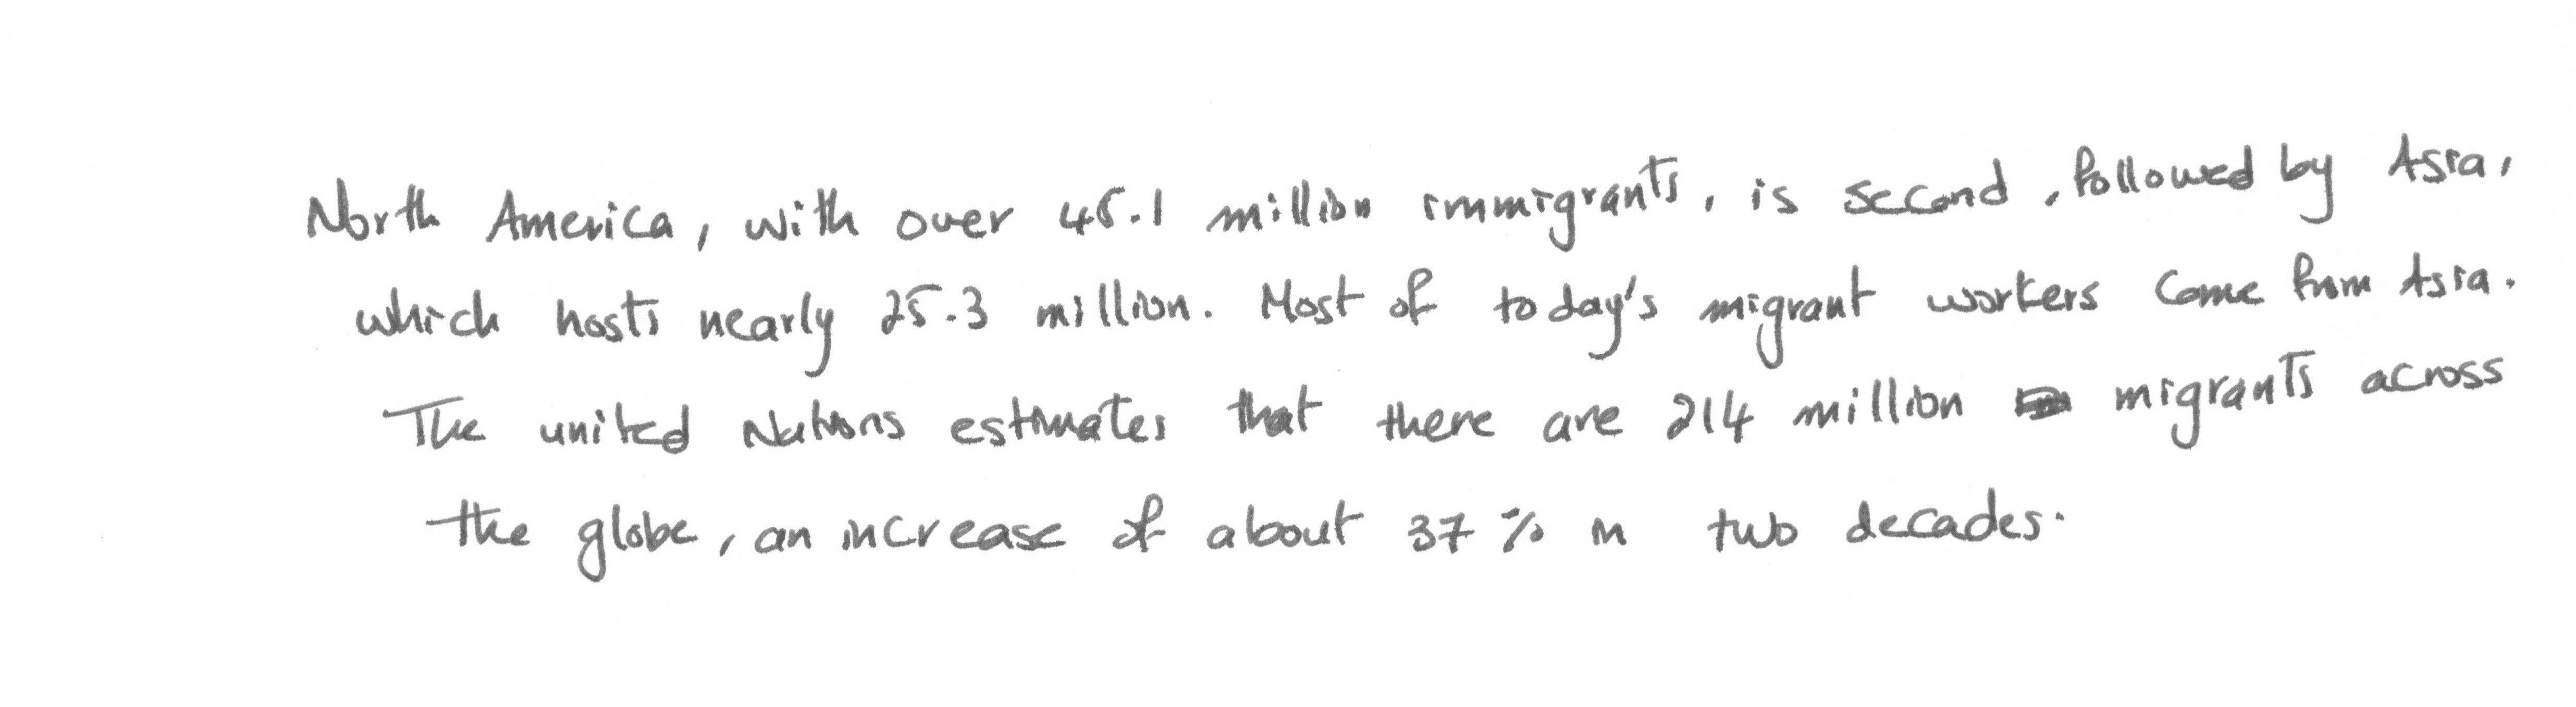 North America, with over 45.1 million immigrants, is second, followed by Asia,
which hosts nearly 25.3 million. Most of today's migrant workers come from Asia.
The united Nations estimates that there are 214 million migrants across
the globe, an increase of about 37 % in two decades.